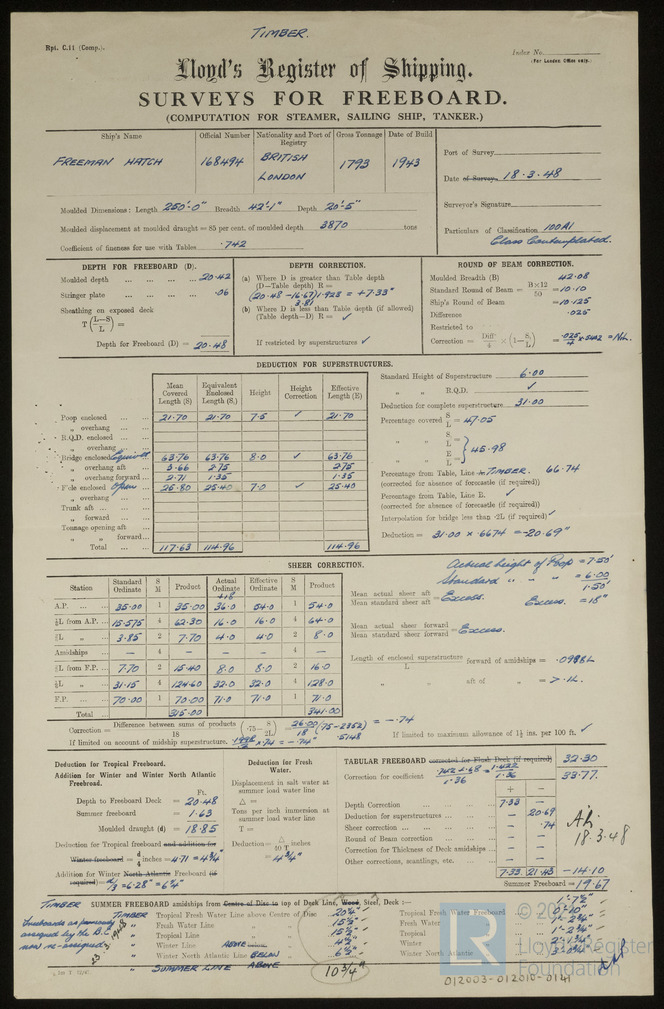 TIMBER.
Rpt. C.11 (Comp.).
Index No.
(For London Office only.)
Lloyd's Register of Shipping.
SURVEYS FOR FREEBOARD.
(COMPUTATION FOR STEAMER, SAILING SHIP, TANKER.)
Ship's Name Official Number Nationality and Port of Registry Gross Tonnage Date of Build
FREEMAN HATCH 168494 BRITISH LONDON 1793 1943
Port of Survey
Date of Survey 18.3.48
Surveyor's Signature
Particulars of Classification 100A1
Class Contemplated.
Moulded Dimensions: Length 250'-0" Breadth 42'-1" Depth 20'-5"
Moulded displacement at moulded draught = 85 per cent. of moulded depth 3870 tons
Coefficient of fineness for use with Tables .742
DEPTH FOR FREEBOARD (D).
Moulded depth 20.42
Stringer plate .06
Sheathing on exposed deck
T (L-S/L) =
Depth for Freeboard (D) = 20.48
DEPTH CORRECTION.
(a) Where D is greater than Table depth
(D—Table depth) R =
(20.48 - 16.67) 1.928 = +7.33"
3.81
(b) Where D is less than Table depth (if allowed)
(Table depth—D) R = ✓
If restricted by superstructures ✓
ROUND OF BEAM CORRECTION.
Moulded Breadth (B) 42.08
Standard Round of Beam = B×12/50 = 10.10
Ship's Round of Beam = 10.125
Difference .025
Restricted to
Correction = Diff/4 × (1 - S₁/L) = .025/4 × .5402 = NIL.
DEDUCTION FOR SUPERSTRUCTURES.
Mean Covered Length (S) Equivalent Enclosed Length (S₁) Height Height Correction Effective Length (E)
Poop enclosed 21.70 21.70 7.5 ✓ 21.70
" overhang
R.Q.D. enclosed
" overhang
Bridge enclosed 63.76 63.76 8.0 ✓ 63.76
" overhang aft 3.66 2.75 2.75
" overhang forward 2.71 1.35 1.35
F'cle enclosed Open 25.80 25.40 7.0 ✓ 25.40
" overhang
Trunk aft
" forward
Tonnage opening aft
" " forward
Total 117.63 114.96 114.96
Standard Height of Superstructure 6.00
" " R.Q.D. ✓
Deduction for complete superstructure 31.00
Percentage covered S/L = 47.05
" " S₁/L =
" " E/L = } 45.98
Percentage from Table, Line TIMBER. 66.74
(corrected for absence of forecastle (if required))
Percentage from Table, Line B. ✓
(corrected for absence of forecastle (if required))
Interpolation for bridge less than ·2L (if required) ✓
Deduction = 31.00 × .6674 = -20.69"
SHEER CORRECTION.
Actual height of Poop = 7.50'
Standard " " " = 6.00
1.50'
Excess. = 18"
Station Standard Ordinate S M Product Actual Ordinate Effective Ordinate S M Product
+18
A.P. 35.00 1 35.00 36.0 54.0 1 54.0
⅙L from A.P. 15.575 4 62.30 16.0 16.0 4 64.0
⅓L " 3.85 2 7.70 4.0 4.0 2 8.0
Amidships — 4 — — — 4 —
⅓L from F.P. 7.70 2 15.40 8.0 8.0 2 16.0
⅙L " 31.15 4 124.60 32.0 32.0 4 128.0
F.P. 70.00 1 70.00 71.0 71.0 1 71.0
Total 315.00 341.00
Mean actual sheer aft
Mean standard sheer aft = Excess.
Mean actual sheer forward
Mean standard sheer forward = Excess.
Length of enclosed superstructure / L forward of amidships = .0998L
" " aft of " = >.1L.
Correction = Difference between sums of products / 18 (·75 - S/2L) = 26.00/18 (.75-.2352) = -.74
.5148
If limited on account of midship superstructure. × .74 = -.74"
If limited to maximum allowance of 1½ ins. per 100 ft. ✓
Deduction for Tropical Freeboard.
Addition for Winter and Winter North Atlantic Freeboard.
Ft.
Depth to Freeboard Deck = 20.48
Summer freeboard = 1.63
Moulded draught (d) = 18.85
Deduction for Tropical freeboard and addition for
Winter freeboard = d/4 inches = 4.71 = 4¾"
Addition for Winter North Atlantic Freeboard (if
required) = d/3 = 6.28" = 6¼"
Deduction for Fresh Water.
Displacement in salt water at summer load water line
Δ =
Tons per inch immersion at summer load water line
T =
Deduction = Δ/40 T inches
= 4¾"
TABULAR FREEBOARD corrected for Flush Deck (if required) 32.30
Correction for coefficient .742+.68/1.36 = 1.422/1.36 33.77.
+ —
Depth Correction 7.33 —
Deduction for superstructures — 20.69
Sheer correction — .74
Round of Beam correction — —
Correction for Thickness of Deck amidships — —
Other corrections, scantlings, etc. — —
7.33 21.43 -14.10
Summer Freeboard = 19.67
18.3.48
TIMBER SUMMER FREEBOARD amidships from Centre of Disc to top of Deck Line, Wood, Steel, Deck:— 1'-7½"
Freeboards as previously
assigned by the B.C.
now re-assigned.
TIMBER Tropical Fresh Water Line above Centre of Disc 20¼"
" Fresh Water Line " 15½"
" Tropical Line " 15½"
" Winter Line ABOVE 4½"
" Winter North Atlantic Line BELOW 6½"
" SUMMER LINE ABOVE 10¾"
Tropical Fresh Water Freeboard 0'-10"
Fresh Water " 1'-2¾"
Tropical " 1'-2¾"
Winter " 2'-1¾"
Winter North Atlantic "
Lloyd's Register
Foundation
LR
012003-012010-0141